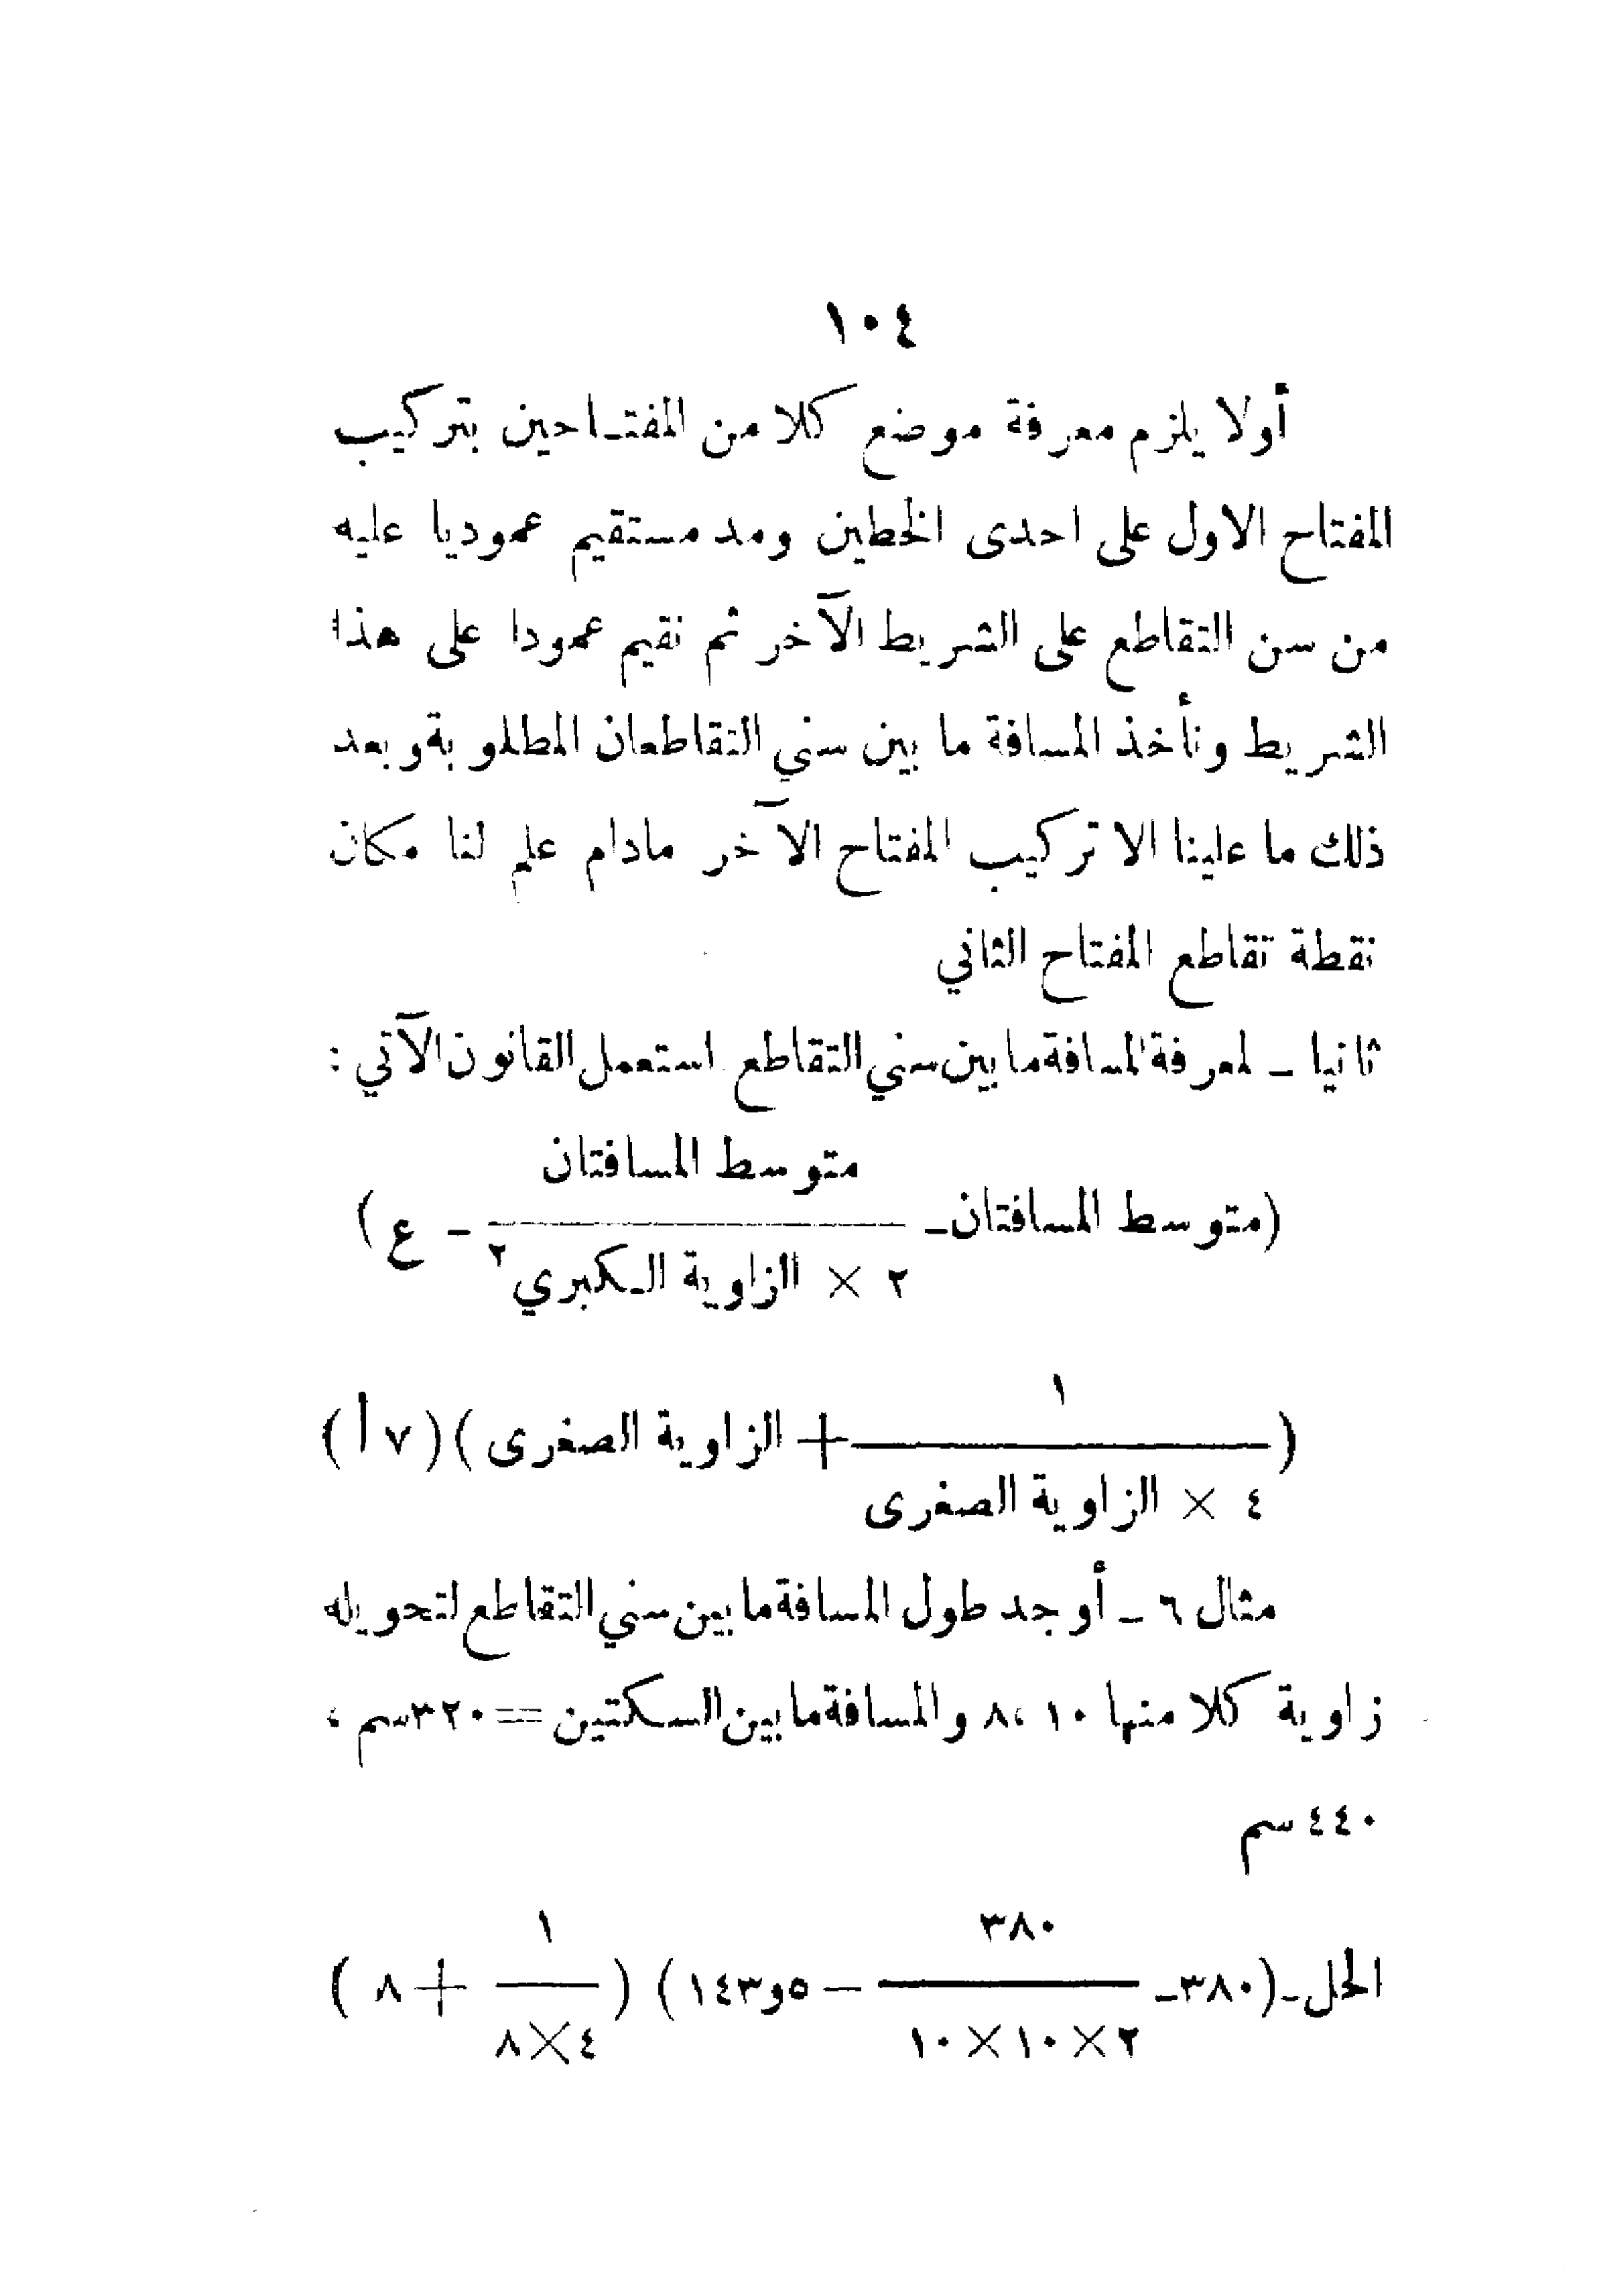 ١٠٤
أولا يلزم معرفة موضع كلا من المفتاحين بتركيب
المفتاح الاول على احدى الخطين ومد مستقيم عموديا عليه
من سن التقاطع على الشريط الآخر ثم نقيم عمودا على هذا
الشريط ونأخذ المسافة ما بين سني التقاطعان المطلوبة وبعد
ذلك ما علينا الا تركيب المفتاح الآخر مادام علم لنا مكان
نقطة تقاطع المفتاح الثاني
ثانيا ـ لمعرفة المسافة ما بين سني التقاطع استعمل القانون الآتي :
متوسط المسافتان
(متوسط المسافتان ـ ــــــــــ ـ ع)
٢ × الزاوية الكبري٢
١
(ــــــــــ + الزاوية الصغرى) (٧ أ)
٤ × الزاوية الصغرى
مثال ٦ ـ أوجد طول المسافة ما بين سني التقاطع لتحويله
زاوية كلا منها ١٠ ،٨ والمسافة ما بين السكتين = ٣٢٠سم ،
٤٤٠ سم
٣٨٠ ١
الحل ـ (٣٨٠ ـ ــــــــــ ـ ١٤٣و٥) (ــــــــــ + ٨)
٢×١٠×١٠ ٤×٨